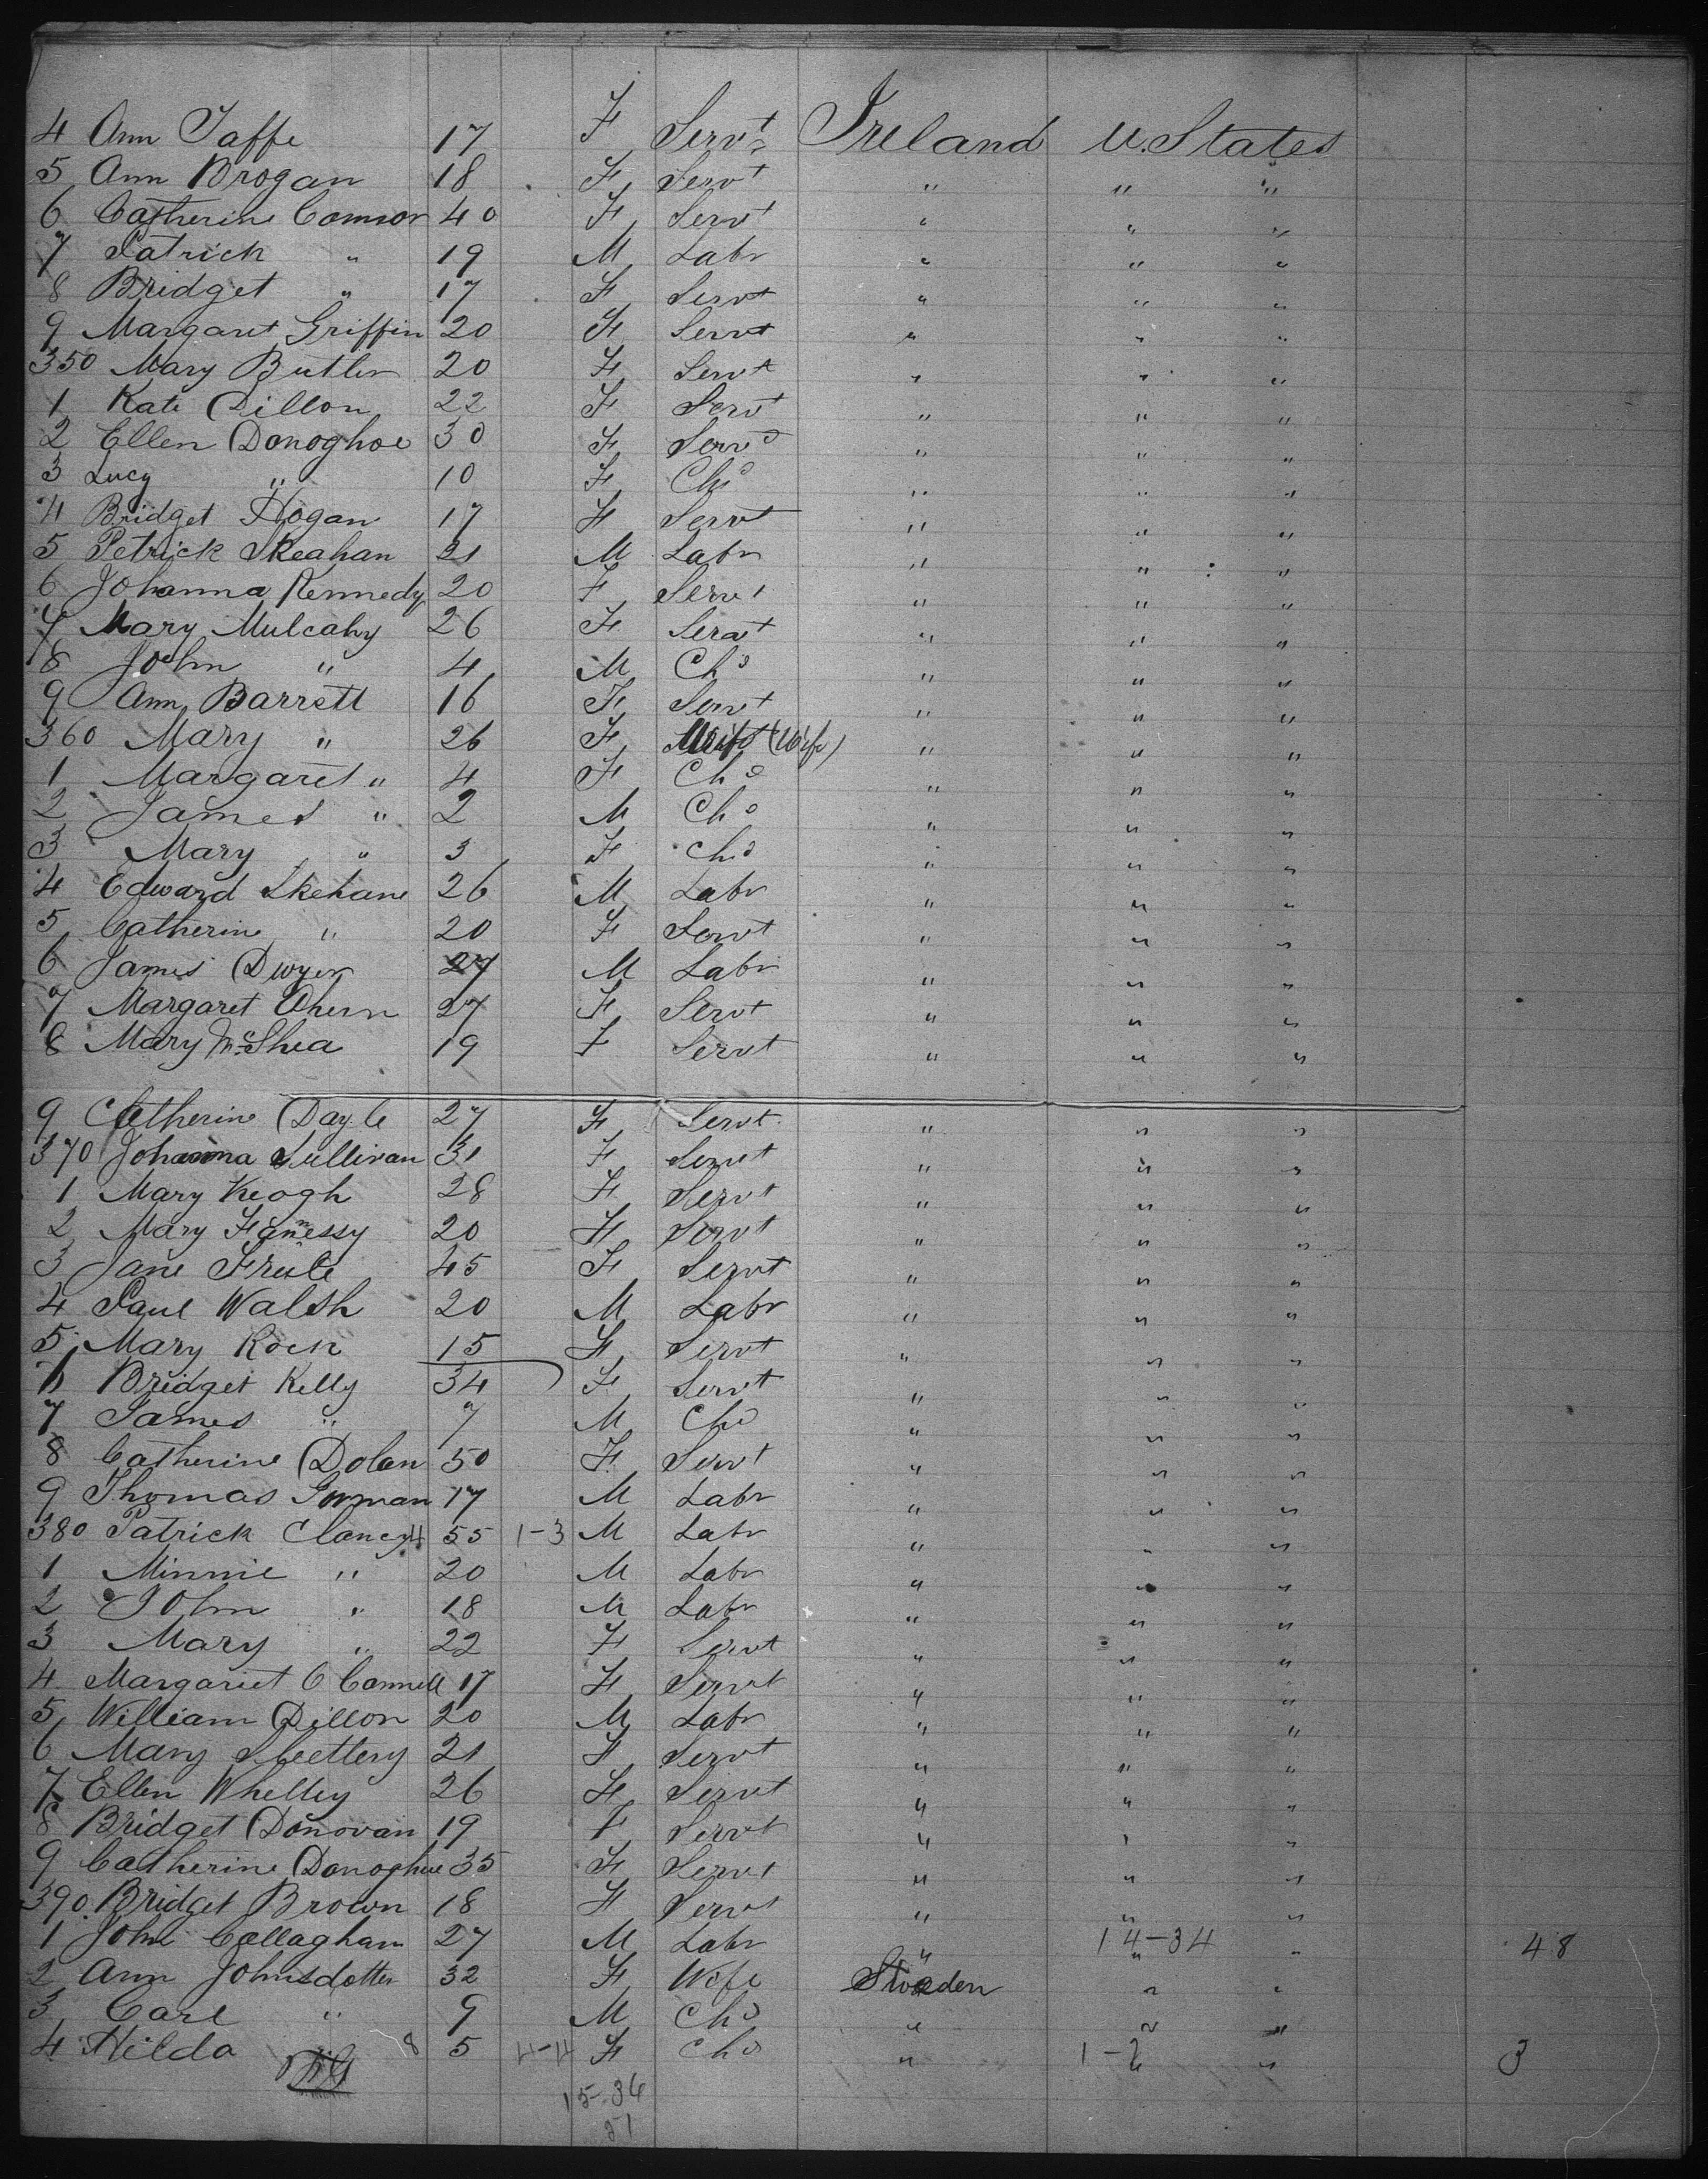 4 Ann Taffe 17 F Servt Ireland U. States
5 Ann Brogan 18 F Servt " " "
6 Catherine Connor 40 F Servt " " "
7 Patrick " 19 M Labr " " "
8 Bridget " 17 F Servt " " "
9 Margaret Griffin 20 F Servt " " "
350 Mary Butler 20 F Servt " " "
1 Kate Dillon 22 F Servt " " "
2 Ellen Donoghoe 30 F Servt " " "
3 Lucy " 10 F Chd " " "
4 Bridget Hogan 17 F Servt " " "
5 Petrick Skeahan 21 M Labr " " "
6 Johanna Kennedy 20 F Servt " " "
7 Mary Mulcahy 26 F Servt " " "
8 John " 4 M Chd " " "
9 Ann Barrett 16 F Servt " " "
360 Mary " 26 F (Wife) " " "
1 Margaret " 4 F Chd " " "
2 James " 2 M Chd " " "
3 Mary " 3 F Chd " " "
4 Edward Skehane 26 M Labr " " "
5 Catherine " 20 F Servt " " "
6 James Dwyer 27 M Labr " " "
7 Margaret Ahern 27 F Servt " " "
8 Mary McShea 19 F Servt " " "
9 Catherine Dayle 27 F Servt " " "
370 Johanna Sullivan 31 F Servt " " "
1 Mary Keogh 28 F Servt " " "
2 Mary Fannessy 20 F Servt " " "
3 Jane Friele 45 F Servt " " "
4 Paul Walsh 20 M Labr " " "
5 Mary Rock 15 F Servt " " "
6 Bridget Kelly 34 F Servt " " "
7 James " 7 M Chd " " "
8 Catherine Dolan 50 F Servt " " "
9 Thomas Gorman 17 M Labr " " "
380 Patrick Clancy 4 55 1-3 M Labr " " "
1 Minnie " 20 M Labr " " "
2 John " 18 M Labr " " "
3 Mary " 22 F Servt " " "
4 Margariet O Connell 17 F Servt " " "
5 William Dillon 20 M Labr " " "
6 Mary 21 F Servt " " "
7 Ellen Whelley 26 F Servt " " "
8 Bridget Donovan 19 F Servt " " "
9 Catherine Donoghue 35 F Servt " " "
390 Bridget Brown 18 F Servt " " "
1 John Callaghan 27 M Labr " 14-34 " " 48
2 Ann Johnsdotter 32 F Wife Sweden " "
3 Carl " 9 M Chd " " "
4 Hilda 8 5 4-4 F Chd " 1-2 " " 3
15-36
51